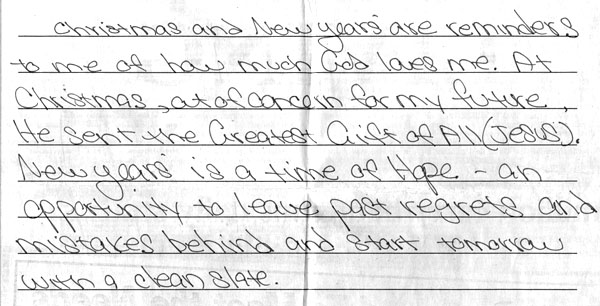 Christmas and New years' are reminders
to me of how much God loves me. At
Christmas, out of concern for my future,
He sent the Greatest Gift of All (Jesus).
New years' is a time of Hope - an
opportunity to leave past regrets and
mistakes behind and start tomorrow
with a clean slate.